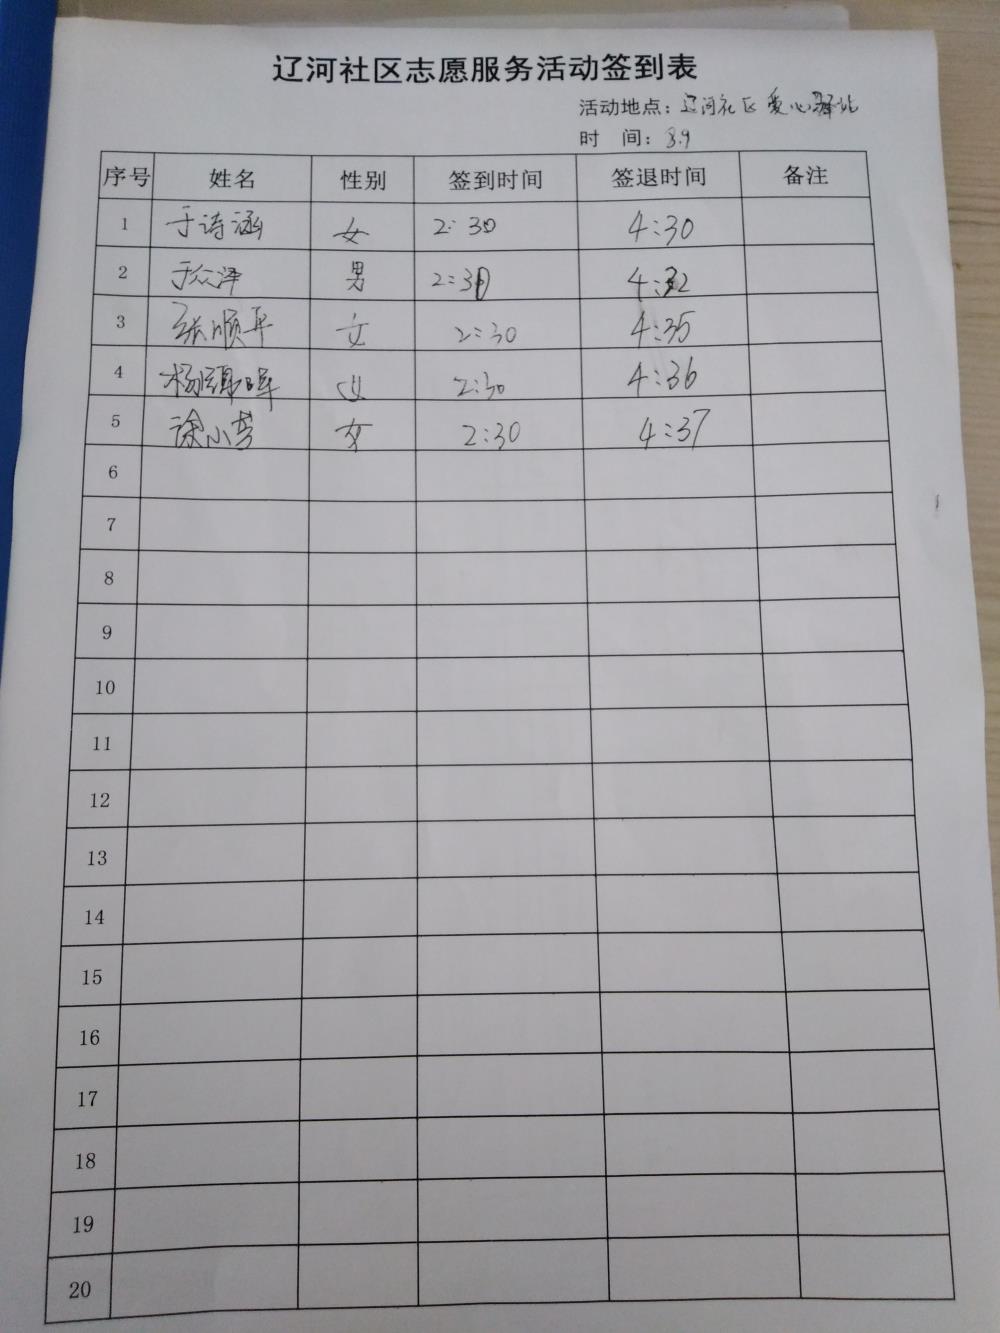 辽河社区志愿服务活动签到表
活动地点：辽河社区爱心驿站
时 间：8.9
序号 姓名 性别 签到时间 签退时间 备注
1 于诗涵 女 2:30 4:30
2 于众泽 男 2:30 4:32
3 张顺平 女 2:30 4:35
4 杨 女 2:30 4:36
5 徐小芳 女 2:30 4:37
6
7
8
9
10
11
12
13
14
15
16
17
18
19
20